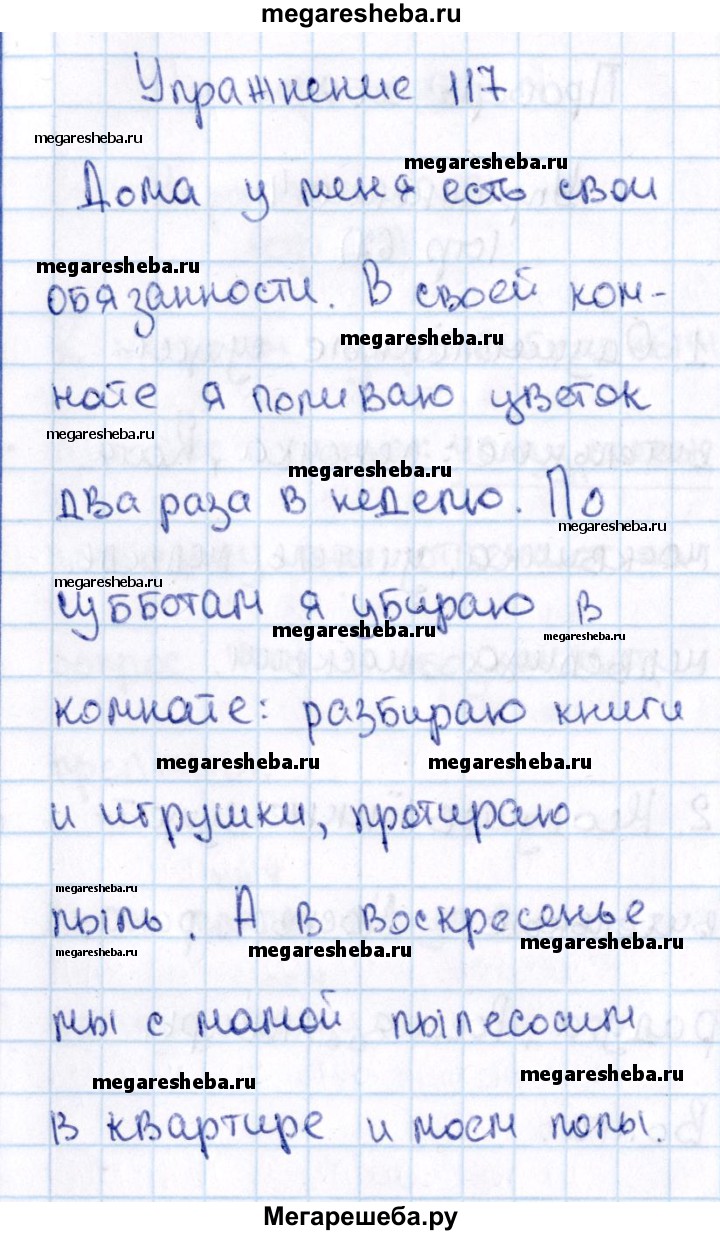 megaresheba.ru
Упражнение 117
megaresheba.ru
megaresheba.ru
Дома у меня есть свои
megaresheba.ru
обязанности. В своей ком-
megaresheba.ru
нате я поливаю цветок
megaresheba.ru
megaresheba.ru
два раза в неделю. По
megaresheba.ru
megaresheba.ru
субботам я убираю в
megaresheba.ru
megaresheba.ru
комнате: разбираю книги
megaresheba.ru
megaresheba.ru
и игрушки, протираю
megaresheba.ru
пыль. А в воскресенье
megaresheba.ru
megaresheba.ru
megaresheba.ru
мы с мамой пылесосим
megaresheba.ru
megaresheba.ru
в квартире и моем полы.
Мегарешеба.ру